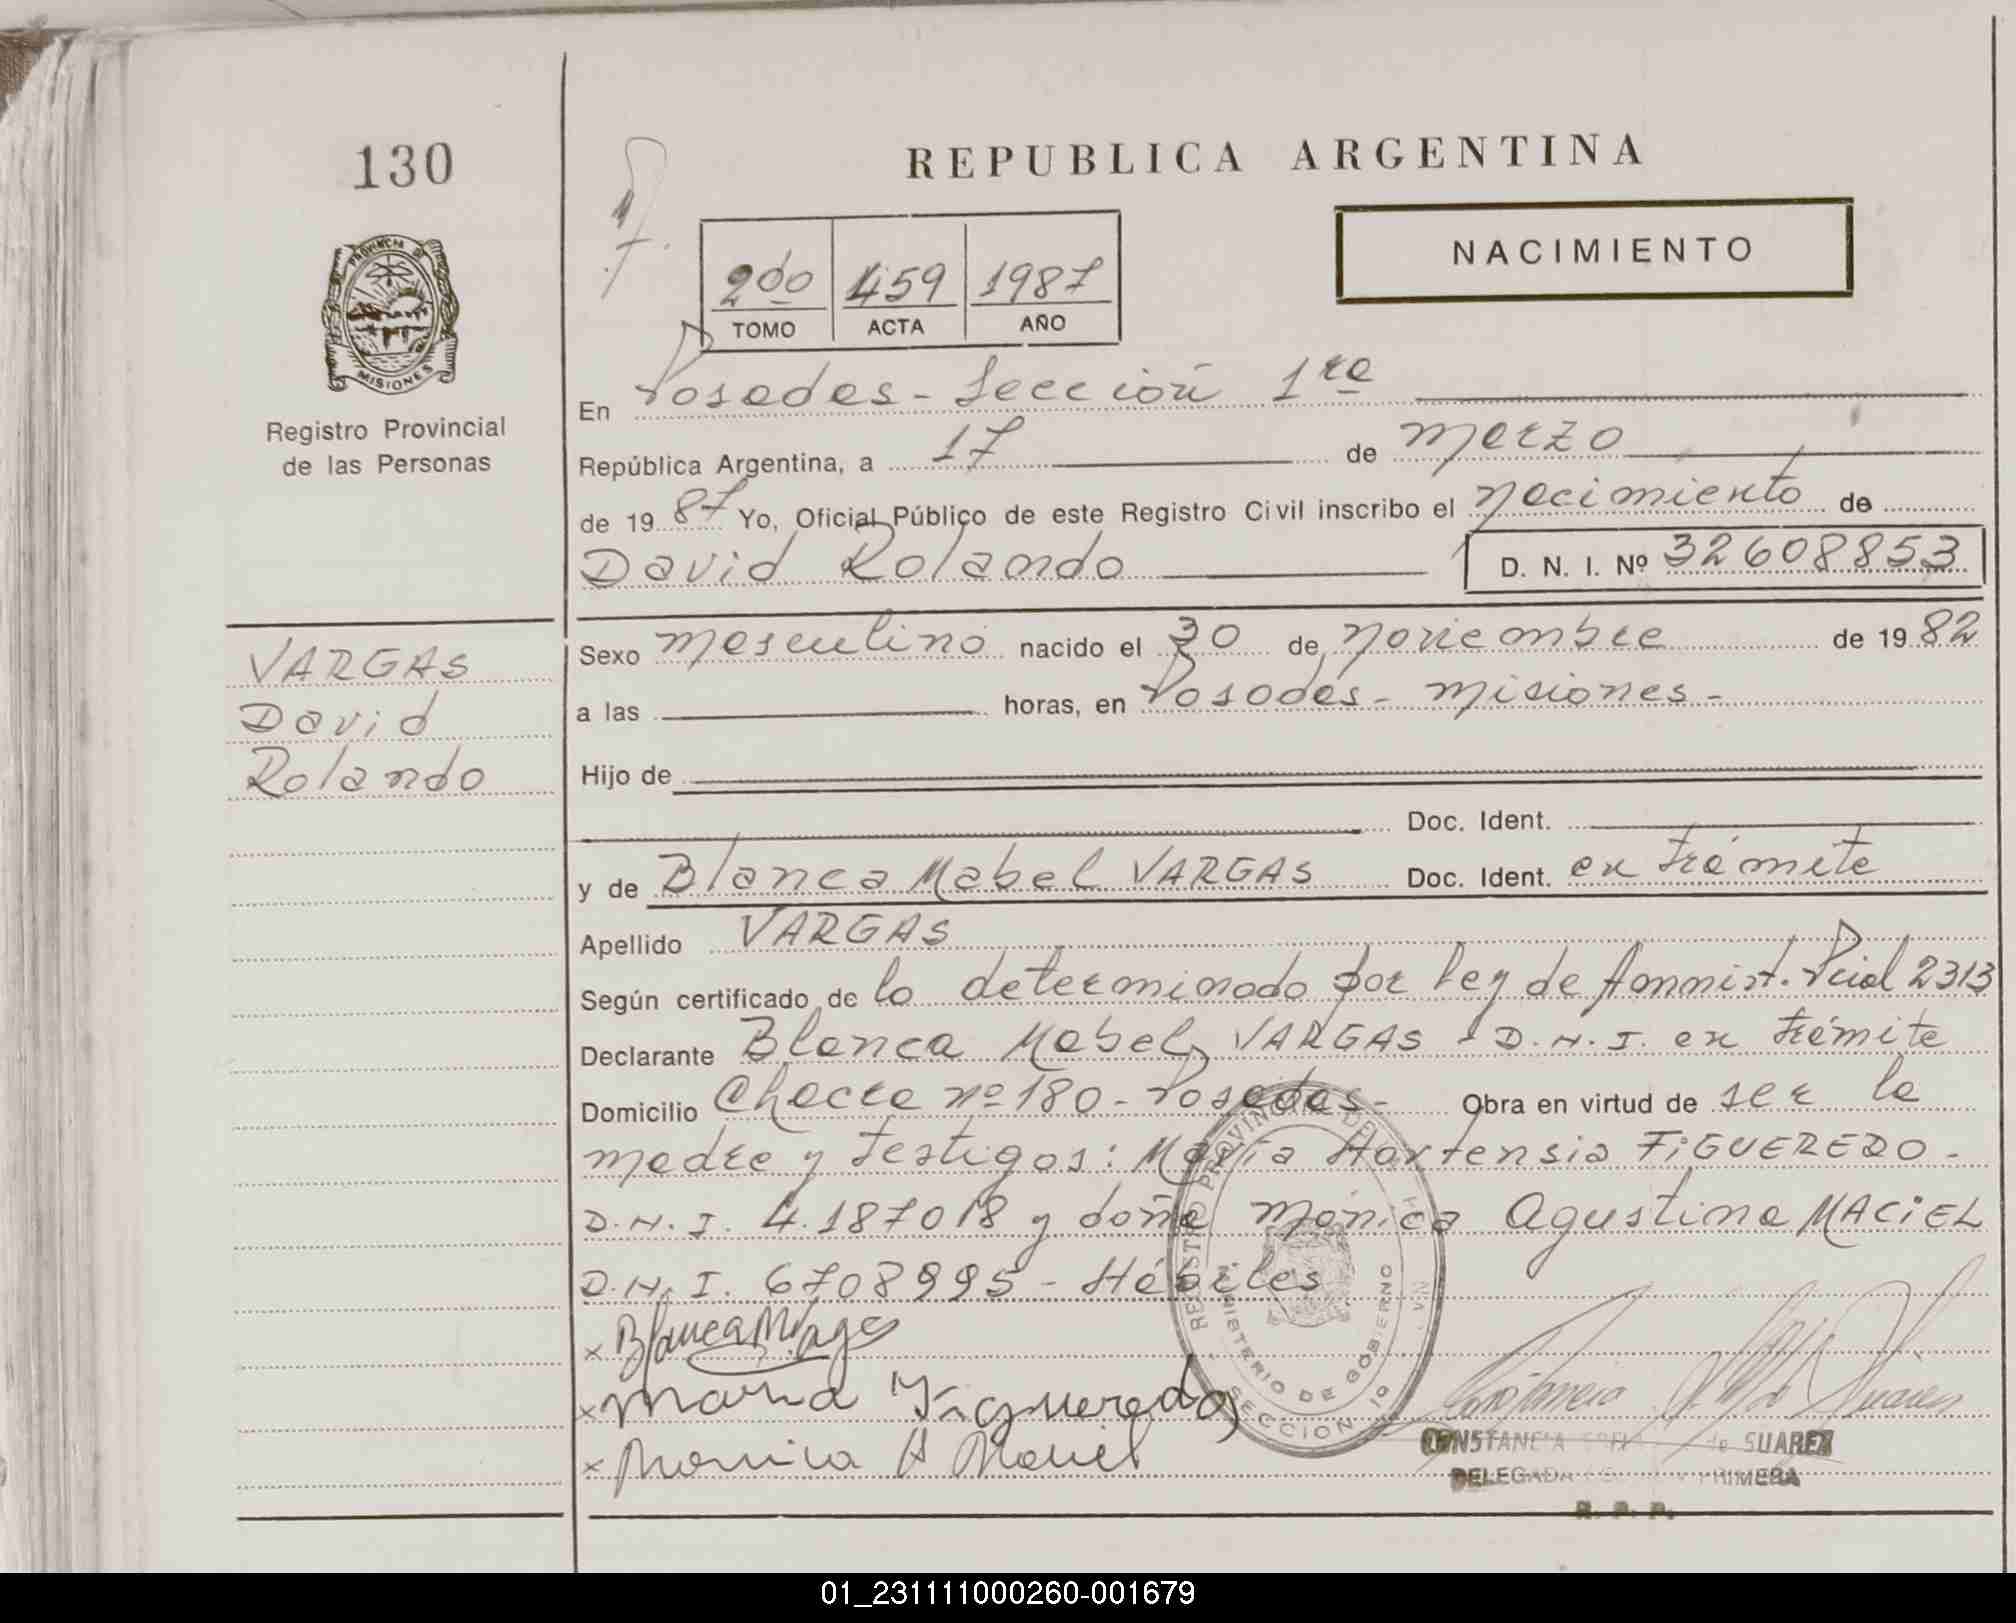 130
REPUBLICA ARGENTINA
NACIMIENTO
2do 459 1987
TOMO ACTA AÑO
PROVINCIA DE
MISIONES
Registro Provincial
de las Personas
En Posadas - Sección 1ra
República Argentina, a 17 de marzo
de 1987 Yo, Oficial Público de este Registro Civil inscribo el nacimiento de
David Rolando D. N. I. Nº 32608853
VARGAS
David
Rolando
Sexo masculino nacido el 30 de noviembre de 1982
a las horas, en Posadas - misiones -
Hijo de
Doc. Ident.
y de Blanca Mabel VARGAS Doc. Ident. en trámite
Apellido VARGAS
Según certificado de lo determinado por Ley de Amnist. Pcial 2313
Declarante Blanca Mabel VARGAS D.N.I. en trámite
Domicilio Chacra nº 180 - Posadas - Obra en virtud de ser la
madre y testigos: María Hortensia FiGUEREDO -
D.N.I. 4.187018 y doña mónica Agustina MACiEL
D.N.I. 6708995 - Hábiles
x Blanca M Vargas
x maria Figueredo
x Monica A Maciel
REGISTRO PROVINCIAL DE LAS
MINISTERIO DE GOBIERNO
SECCION 1ª
CONSTANCIA de SUAREZ
DELEGADA PRIMERA
R. P. P.
01_231111000260-001679